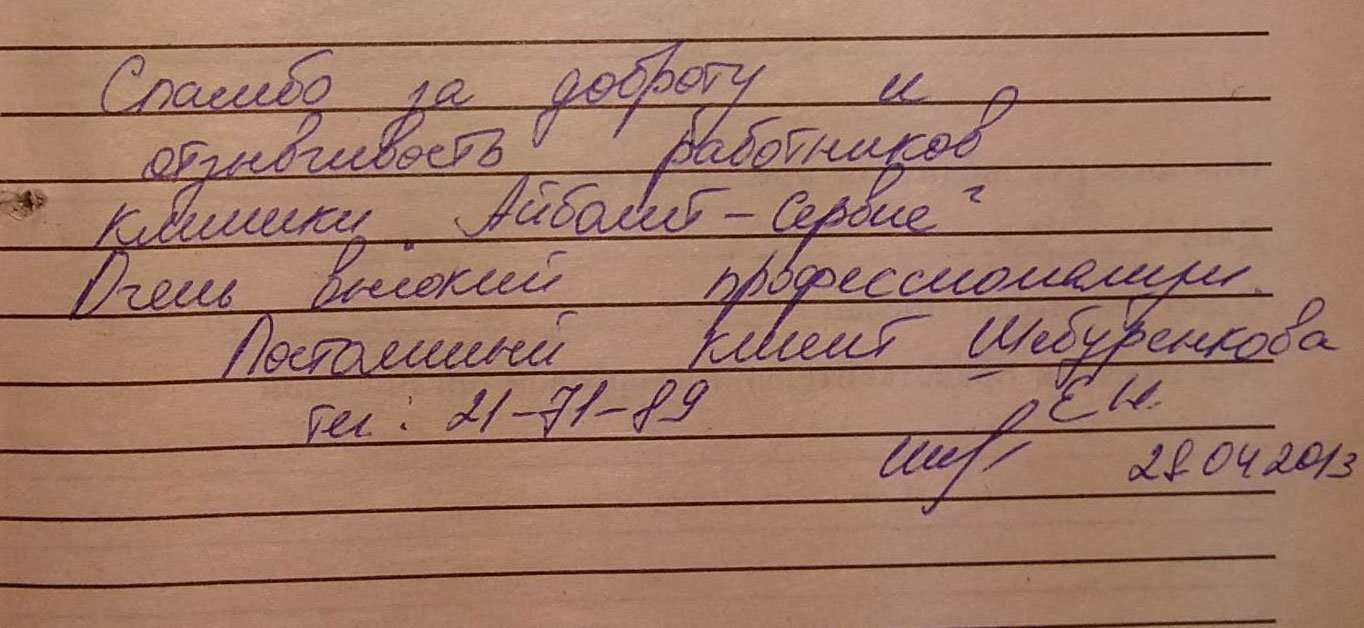 Спасибо за доброту и
отзывчивость работников
клиники „Айболит-Сервис"
Очень высокий профессионализм.
Постоянный клиент Шебуренкова
Е.Н.
тел: 21-71-89
28.04.2013